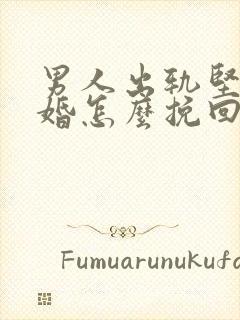 男人出轨坚
婚怎麽挽回
Fumuarunukufo